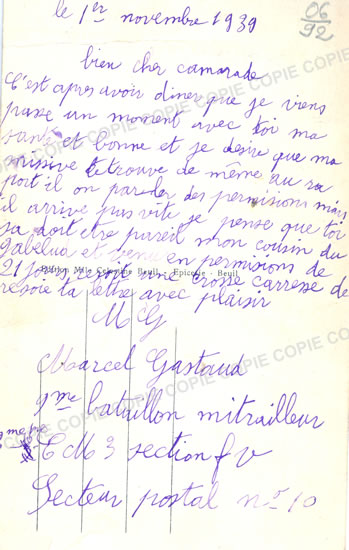 le 1er novembre 1939
06
92
bien cher camarade
C'est apres avoir diner que je viens
passe un moment avec toi ma
santé et bonne et je desire que ma
missive te trouve de même au sa
port il on parler des permisions mais
il arrive pas vite je pense que toi
sa doit etre pareil mon cousin du
gabelua et venu en permisions de
21 jour crosse carresse de
resoie ta lettre avec plaisir
MG
Marcel Gastaud
9me bataillon mitrailleur
CM 3 section fv
Secteur postal no 10
COPIE COPIE COPIE COPIE
Epicerie - Beuil